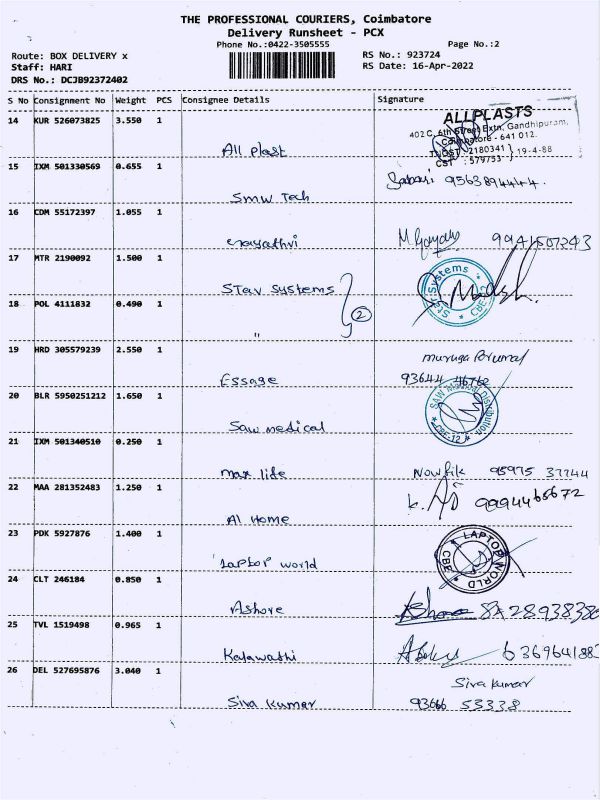 THE PROFESSIONAL COURIERS, Coimbatore
Delivery Runsheet - PCX
Phone No.:0422-3505555 Page No.:2
Route: BOX DELIVERY x RS No.: 923724
Staff: HARI RS Date: 16-Apr-2022
DRS No.: DCJB92372402
S No Consignment No Weight PCS Consignee Details Signature
14 KUR 526073825 3.550 1
ALLPLASTS
402 C, 6th Street Extn, Gandhipuram,
Coimbatore - 641 012.
TNGST : 2180341 } 19-4-88
CST : 579753
All plast
15 IXM 501330569 0.655 1
Sabari 9563894444.
SMW Tech
16 CDM 55172397 1.055 1
Gayathri M. Gayathri 9941507243
17 MTR 2190092 1.500 1
STar Systems
Star Systems * CBE-12 *
18 POL 4111832 0.490 1 2
"
19 HRD 305579239 2.550 1
muruga Perumal
Essage 93644 46762
20 BLR 5950251212 1.650 1
Saw medical
SAW Medical Distribution * CBE-12 *
21 IXM 501340510 0.250 1
max life Nowfik 95975 37744
22 MAA 281352483 1.250 1
Al Home 9994465672
23 PDK 5927876 1.400 1
Laptop world
LAPTOP WORLD * CBE *
24 CLT 246184 0.850 1
Ashore
25 TVL 1519498 0.965 1
Kalawathi 636964188
26 DEL 527695876 3.040 1
Siva Kumar
Siva Kumar 93666 53338